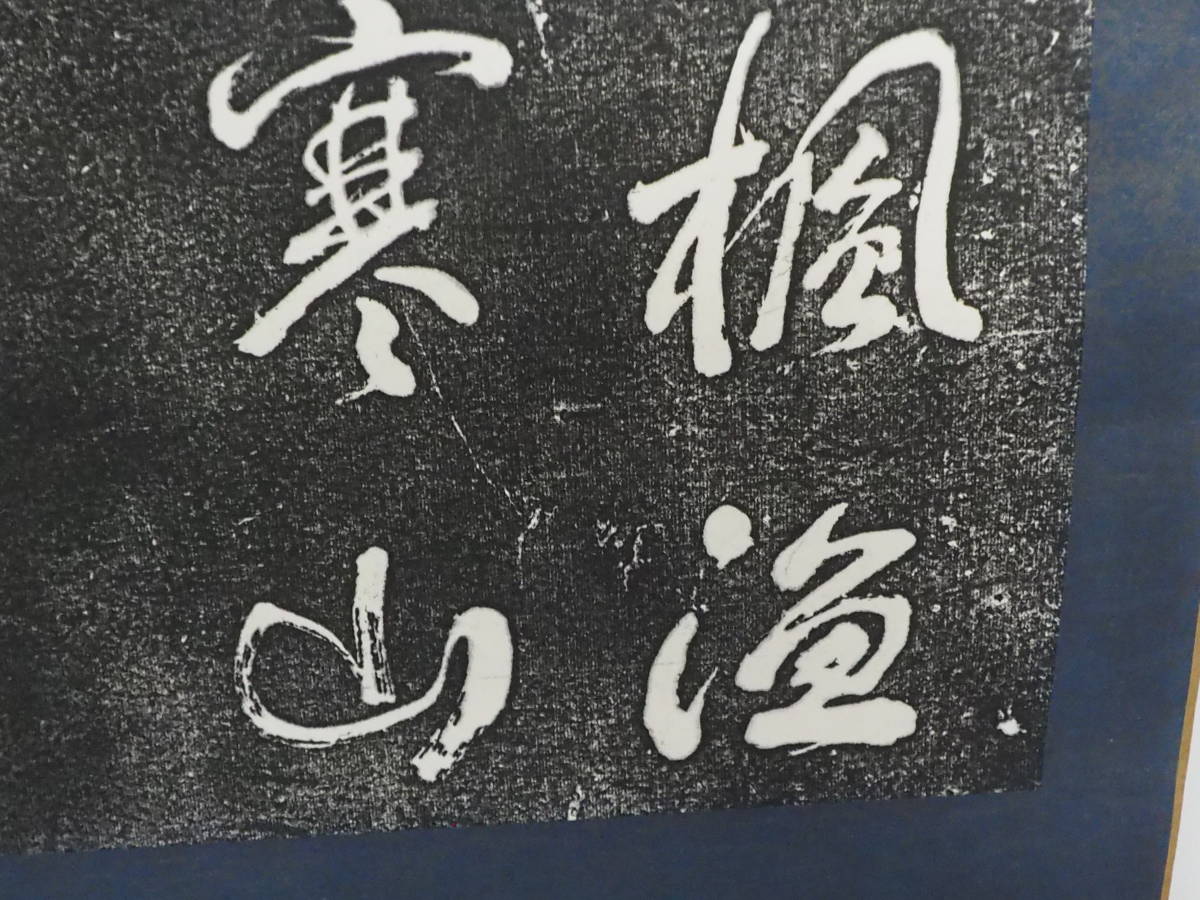 楓漁
寒山